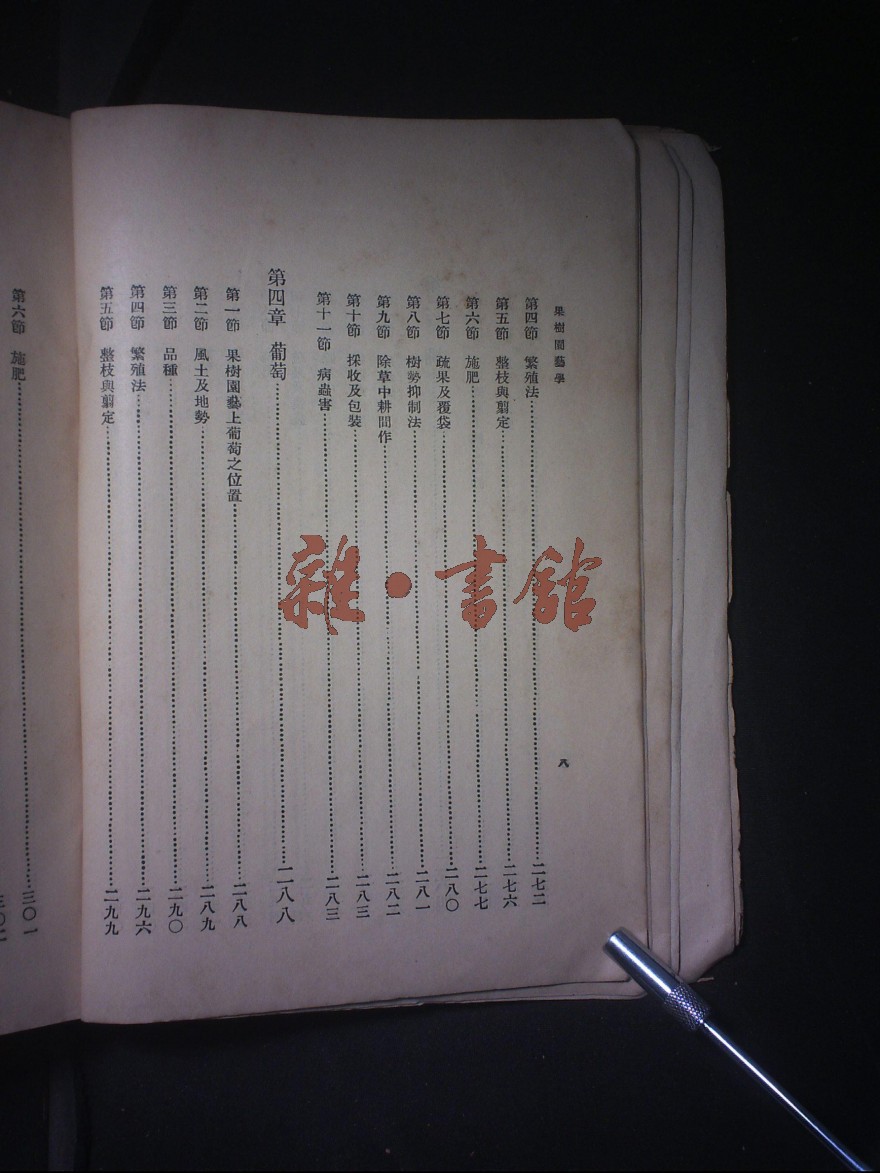 果樹園藝學
八
第四節 繁殖法……二七二
第五節 整枝與剪定……二七六
第六節 施肥……二七七
第七節 疏果及覆袋……二八〇
第八節 樹勢抑制法……二八一
第九節 除草中耕間作……二八二
第十節 採收及包裝……二八三
第十一節 病蟲害……二八三
第四章 葡萄……二八八
第一節 果樹園藝上葡萄之位置……二八八
第二節 風土及地勢……二八九
第三節 品種……二九〇
第四節 繁殖法……二九六
第五節 整枝與剪定……二九九
第六節 施肥……三〇一
三〇二
雜·書館